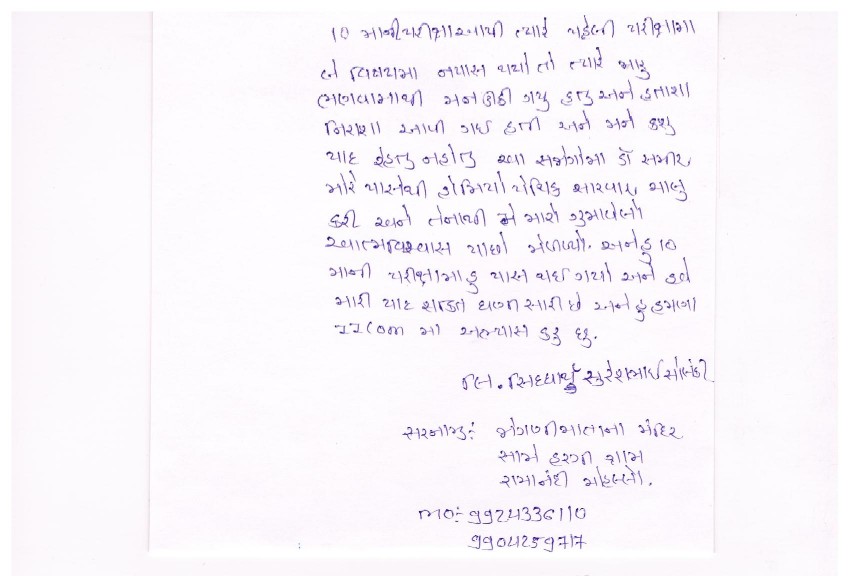 10 માની પરીક્ષા આપી ત્યારે પહેલી પરીક્ષામા
બે વિષયમા નપાસ થયો તો ત્યારે મારૂ
ભણવામાથી મન ઉઠી ગયુ હતુ અને હતાશા
નિરાશા આવી ગઇ હતી અને મને કશુ
યાદ રહેતુ નહોતુ આ સજોગોમા ડૉ સમીર
મોરે પાસેથી હોમિયોપેથિક સારવાર ચાલુ
કરી અને તેનાથી મે મારો ગુમાવેલો
આત્મવિશ્વાસ પાછો મેળવ્યો. અને હુ 10
માની પરીક્ષામા હુ પાસ થઇ ગયો અને હવે
મારી યાદ શક્તિ ઘણી સારી છે અને હું હમણા
IICom મા અભ્યાસ કરુ છુ.
લિ. સિધ્ધાર્થ સુરેશભાઇ સોલંકી
સરનામુ: મંદિર
સામે હરણી ગામ
રામાનંદી મોહલ્લો.
MO:- 9924336110
9904259717